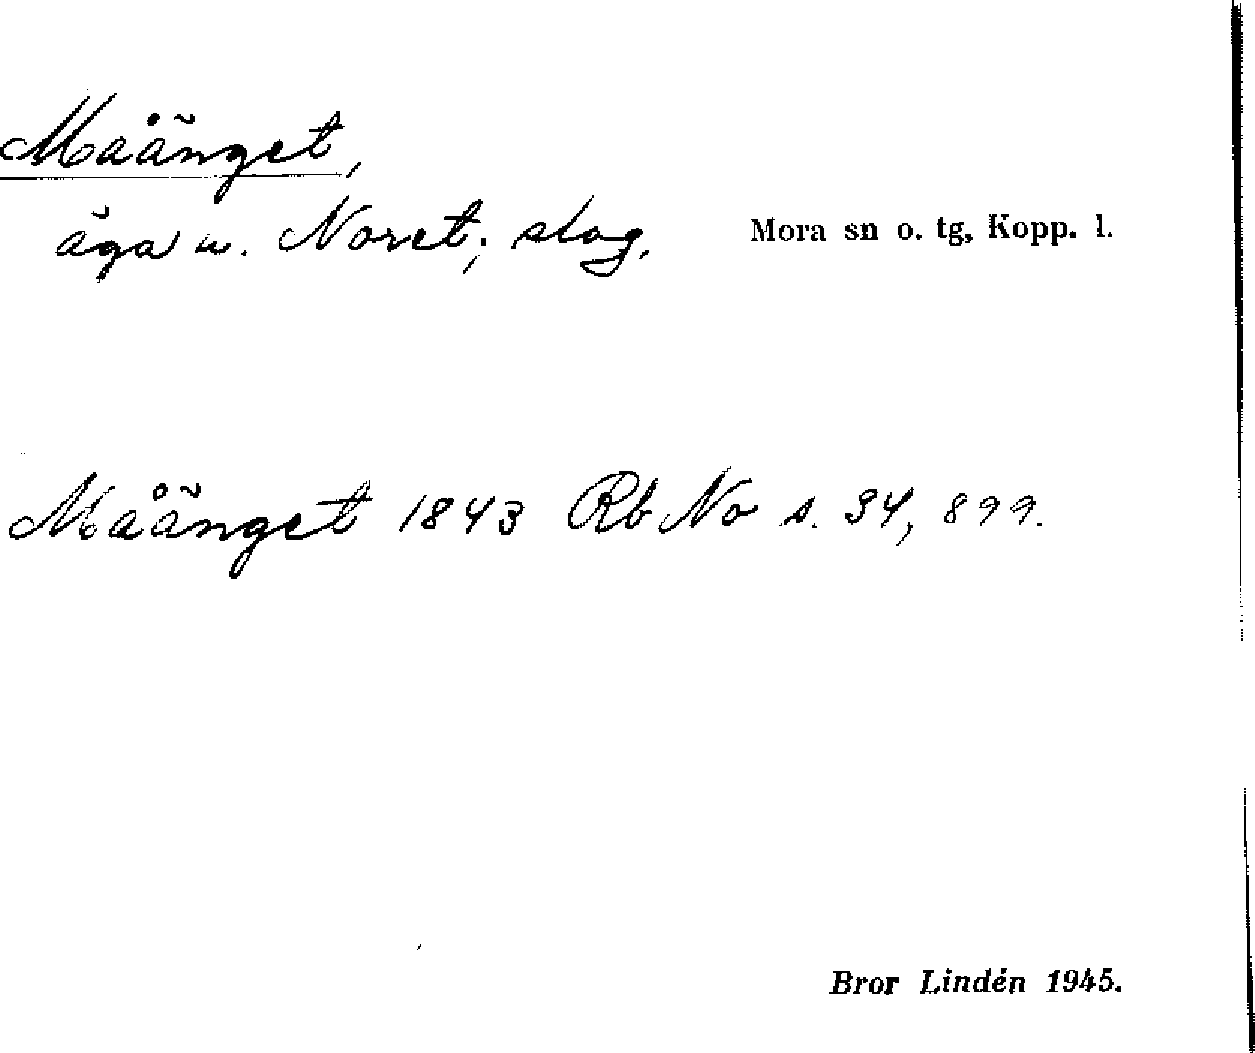 Måänget,
äga u. Noret; slog.
Mora sn o. tg, Kopp. l.
Måänget 1843 Rb No s. 34, 899.
Bror Lindén 1945.